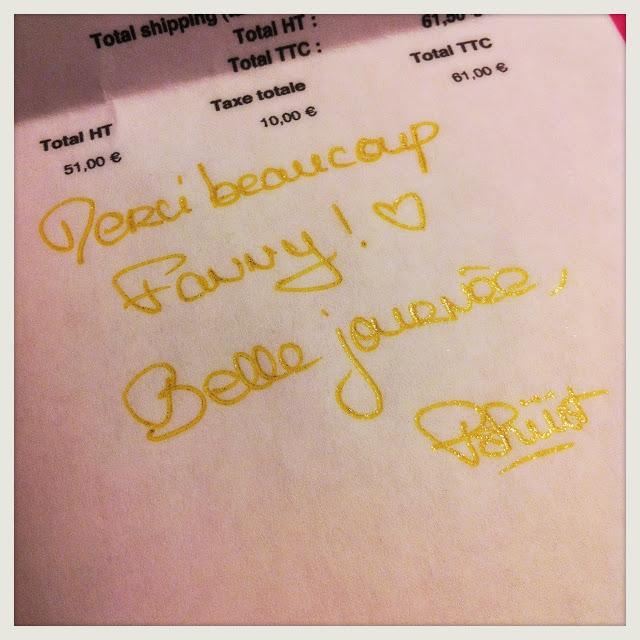 Total shipping
Total HT : 61,50 €
Total TTC :
Total HT Taxe totale Total TTC
51,00 € 10,00 € 61,00 €
Merci beaucoup
Fanny ! ♡
Belle journée,